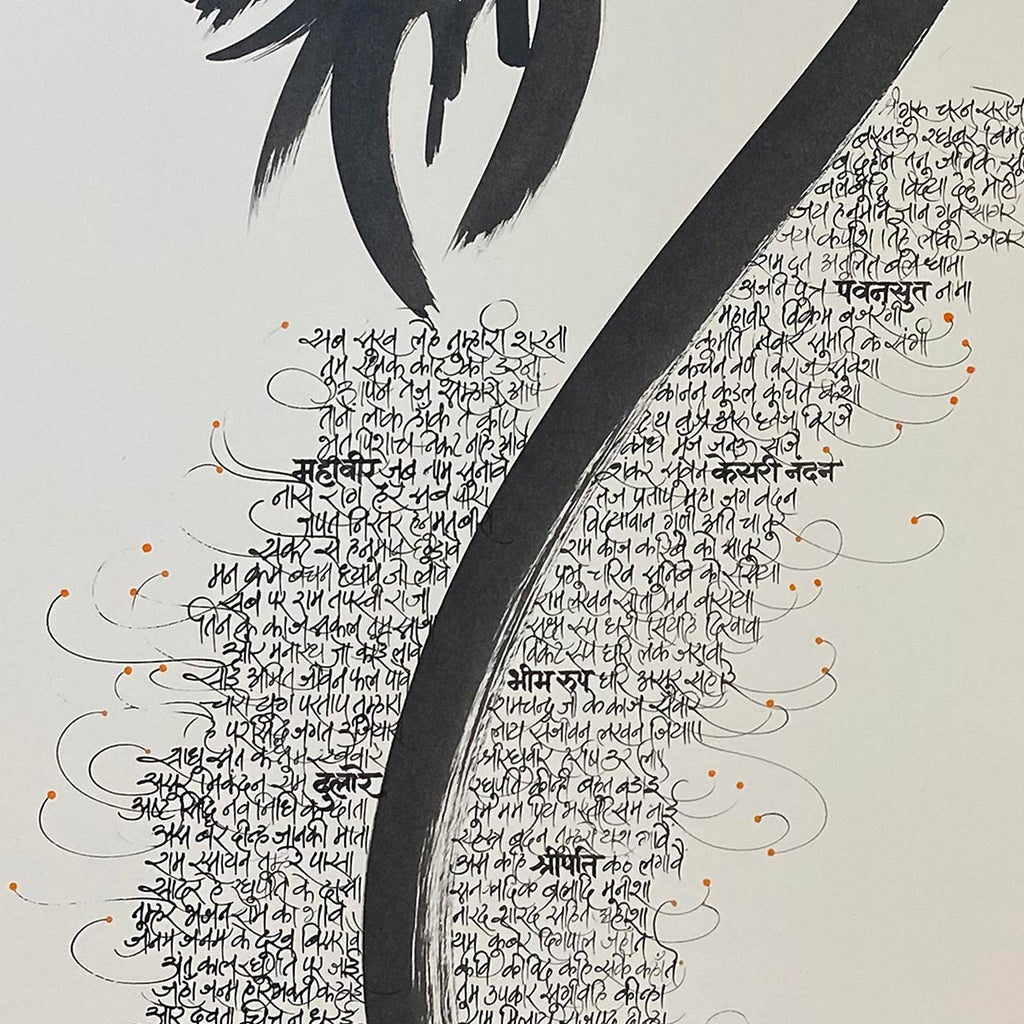 श्रीगुरु चरन सरोज
बरनऊ रघुबर बिम
बुद्धिहीन तनु जानिके सु
बल बुद्धि विद्या देहु मोहि
जय हनुमान ज्ञान गुन सागर
जय कपीश तिहु लोक उजागर
राम दूत अतुलित बल धामा
अंजनि पुत्र पवनसुत नामा
महावीर विक्रम बजरंगी
कुमति निवार सुमति के संगी
कंचन वर्ण विराज सुवेशा
कानन कुंडल कुंचित केशा
हाथ बज्र और ध्वजा विराजै
कांधे मूंज जनेऊ साजै
शंकर सुवन केसरी नंदन
तेज प्रताप महा जग वंदन
विद्यावान गुणी अति चातुर
राम काज करिबे को आतुर
प्रभु चरित्र सुनिबे को रसिया
राम लखन सीता मन बसिया
सूक्ष्म रूप धरि सियहि दिखावा
विकट रूप धरि लंक जरावा
भीम रुप धरि असुर संहारे
रामचन्द्र जी के काज संवारे
लाय सजीवन लखन जियाए
श्रीरघुवीर हरषि उर लाए
रघुपति कीन्ही बहुत बड़ाई
तुम मम प्रिय भरतहि सम भाई
सहस्त्र बदन तुम्हरो यश गावै
अस कहि श्रीपति कंठ लगावै
सनकादिक ब्रह्मादि मुनीशा
नारद शारद सहित अहीशा
यम कुबेर दिगपाल जहाँ ते
कवि कोविद कहि सके कहाँ ते
तुम उपकार सुग्रीवहि कीन्हा
राम मिलाय राजपद दीन्हा
सब सुख लहै तुम्हारी शरना
तुम रक्षक काहू को डरना
आपन तेज सम्हारो आपै
तीनों लोक हाँक ते काँपै
भूत पिशाच निकट नहि आवै
महावीर जब नाम सुनावै
नासै रोग हरै सब पीरा
जपत निरंतर हनुमत बीरा
संकट से हनुमान छुडावै
मन क्रम बचन ध्यान जो लावै
सब पर राम तपस्वी राजा
तिन के काज सकल तुम साजा
और मनोरथ जो कोई लावै
सोई अमित जीवन फल पावै
चारों युग परताप तुम्हारा
है परसिद्ध जगत उजियारा
साधु संत के तुम रखवारे
असुर निकंदन राम दुलारे
अष्ट सिद्धि नव निधि के दाता
अस बर दीन्ह जानकी माता
राम रसायन तुम्हरे पासा
सादर हे रघुपति के दासा
तुम्हरे भजन राम को भावै
जनम जनम के दुख बिसरावै
अंत काल रघुपति पुर जाई
जहां जन्म हरिभक्त कहाई
और देवता चित्त न धरई